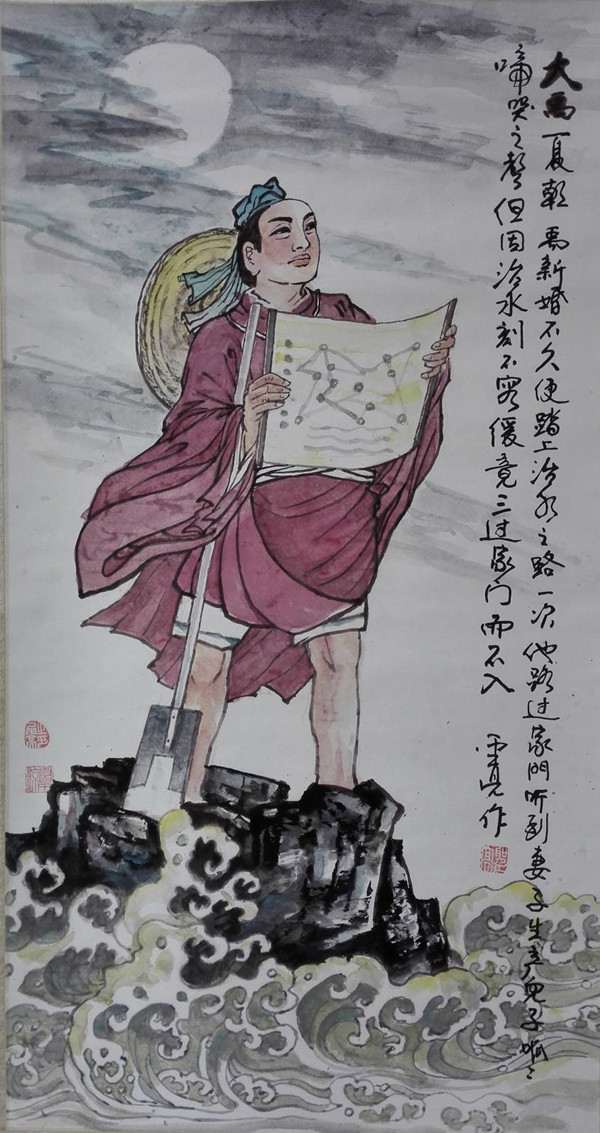 大禹 夏朝 禹新婚不久便踏上治水之路一次他路过家門听到妻子生产兒子呱々
啼哭之聲但因治水刻不容缓竟三过家门而不入 作